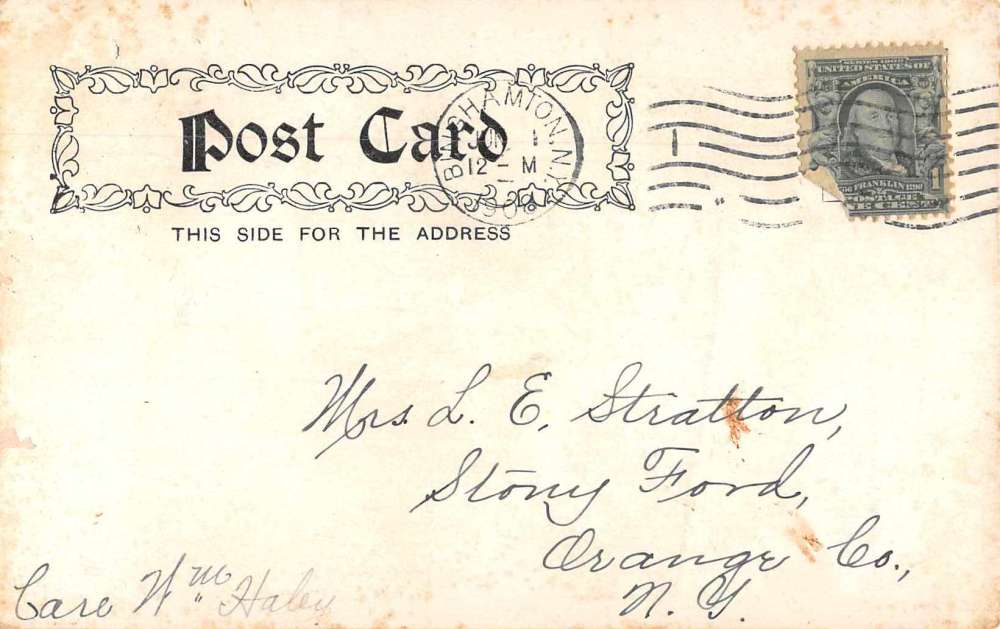 Post Card
THIS SIDE FOR THE ADDRESS
BINGHAMTON, N.Y.
JUN 1
12 - M
1908
SERIES 1902
UNITED STATES OF
AMERICA
FRANKLIN
POSTAGE
1
Mrs. L. E. Stratton,
Stony Ford,
Orange Co.,
N. Y.
Care Wm Haley